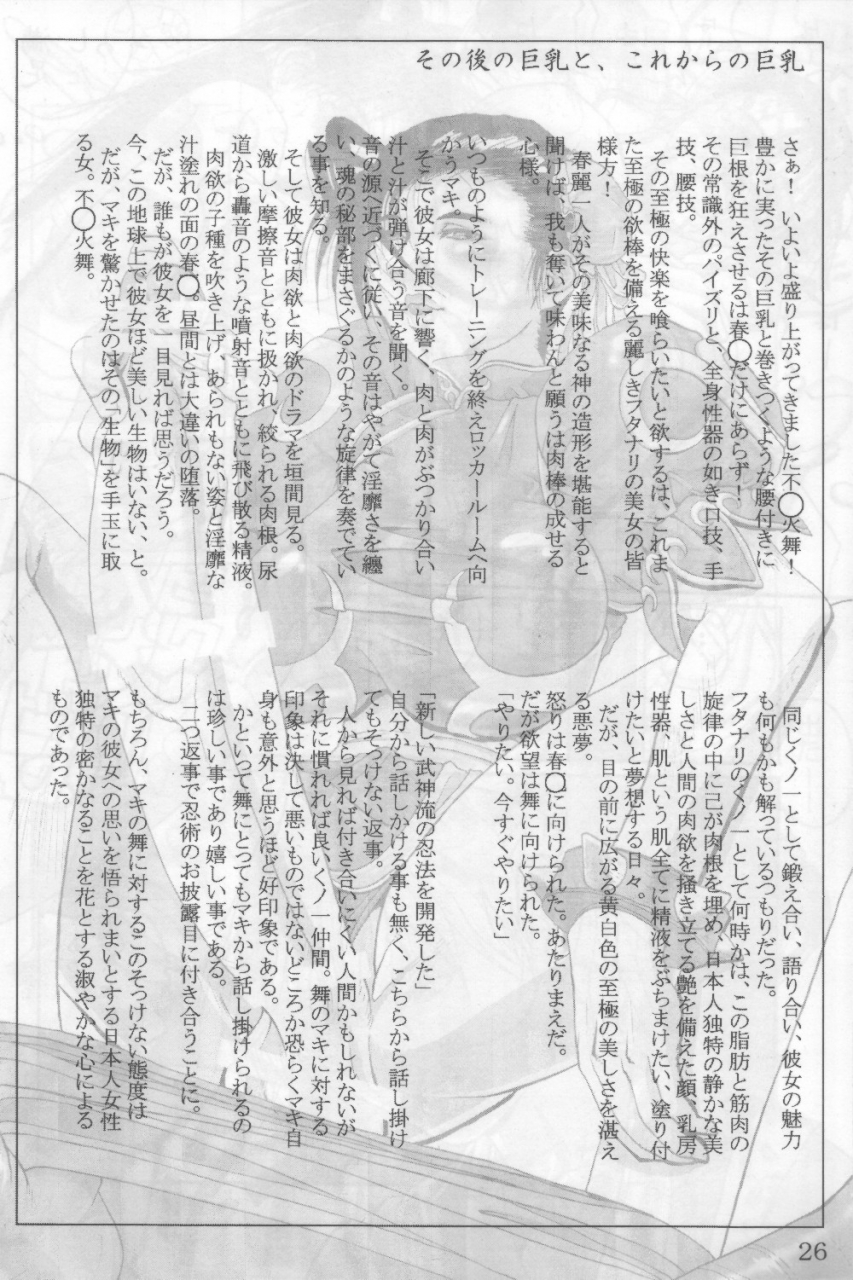 その後の巨乳と、これからの巨乳
さぁ！　いよいよ盛り上がってきました不〇火舞！
豊かに実ったその巨乳と巻きつくような腰付きに
巨根を狂えさせるは春〇だけにあらず！
その常識外のパイズリと、全身性器の如き口技、手
技、腰技。
その至極の快楽を喰らいたいと欲するは、これま
た至極の欲棒を備える麗しきフタナリの美女の皆
様方！
春麗一人がその美味なる神の造形を堪能すると
聞けば、我も奪いて味わんと願うは肉棒の成せる
心様。
いつものようにトレーニングを終えロッカールームへ向
かうマキ。
そこで彼女は廊下に響く、肉と肉がぶつかり合い
汁と汁が弾け合う音を聞く。
音の源へ近づくに従い、その音はやがて淫靡さを纏
い、魂の秘部をまさぐるかのような旋律を奏でてい
る事を知る。
そして彼女は肉欲と肉欲のドラマを垣間見る。
激しい摩擦音とともに扱かれ、絞られる肉根。尿
道から轟音のような噴射音とともに飛び散る精液。
肉欲の子種を吹き上げ、あられもない姿と淫靡な
汁塗れの面の春〇。昼間とは大違いの堕落。
だが、誰もが彼女を一目見れば思うだろう。
今、この地球上で彼女ほど美しい生物はいない、と。
だが、マキを驚かせたのはその「生物」を手玉に取
る女。不〇火舞。
同じくノ一として鍛え合い、語り合い、彼女の魅力
も何もかも解っているつもりだった。
フタナリのくノ一として何時かは、この脂肪と筋肉の
旋律の中に己が肉根を埋め、日本人独特の静かな美
しさと人間の肉欲を掻き立てる艶を備えた顔、乳房
性器、肌という肌全てに精液をぶちまけたい、塗り付
けたいと夢想する日々。
だが、目の前に広がる黄白色の至極の美しさを湛え
る悪夢。
怒りは春〇に向けられた。あたりまえだ。
だが欲望は舞に向けられた。
「やりたい。今すぐやりたい」
「新しい武神流の忍法を開発した」
自分から話しかける事も無く、こちらから話し掛け
てもそつけない返事。
人から見れば付き合いにくい人間かもしれないが
それに慣れれば良いくノ一仲間。舞のマキに対する
印象は決して悪いものではないどころか恐らくマキ自
身も意外と思うほど好印象である。
かといって舞にとってもマキから話し掛けられるの
は珍しい事であり嬉しい事である。
二つ返事で忍術のお披露目に付き合うことに。
もちろん、マキの舞に対するこのそっけない態度は
マキの彼女への思いを悟られまいとする日本人女性
独特の密かなることを花とする淑やかな心による
ものであった。
26